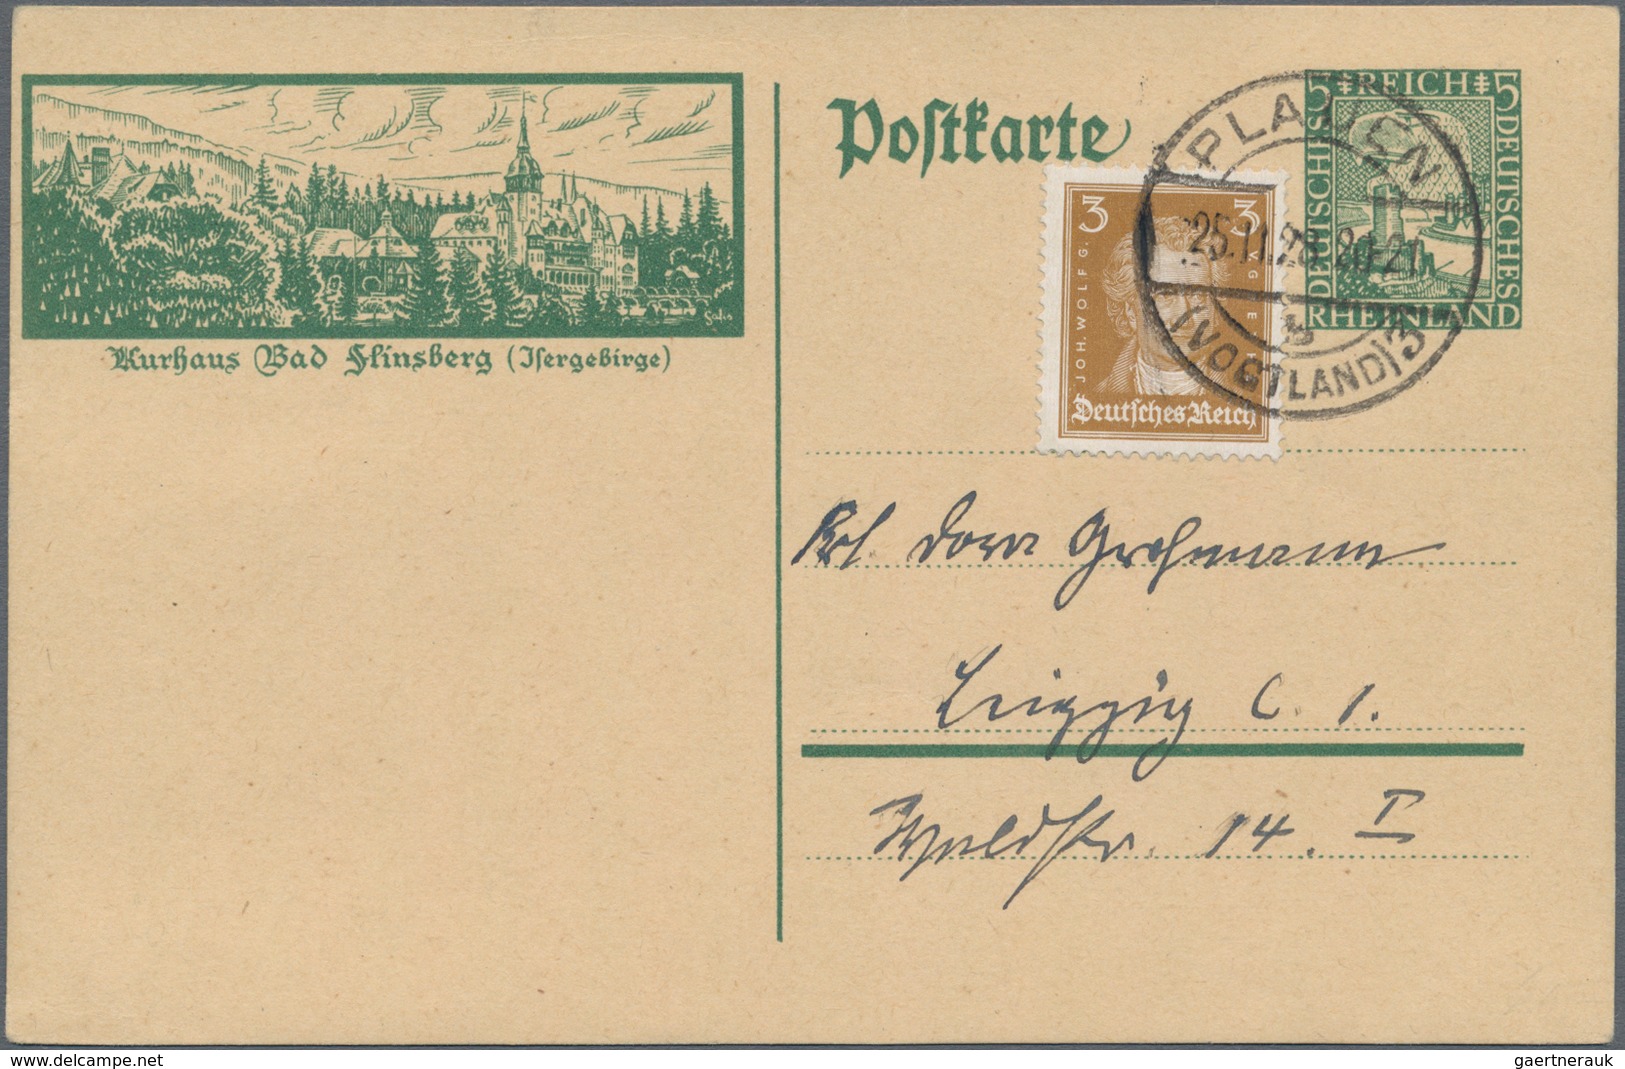 Postkarte
Kurhaus Bad Flinsberg (Isergebirge)
5 REICH 5
DEUTSCHES
DEUTSCHES
RHEINLAND
3 3
JOH. WOLFG. V. GOETHE
Deutsches Reich
PLAUEN
25.11.28. 20-21
b
(VOGTLAND) 3
Frl. Dora Grohmann
Leipzig C. 1.
Waldstr. 14. I
delcampe.net
gaertnerauk